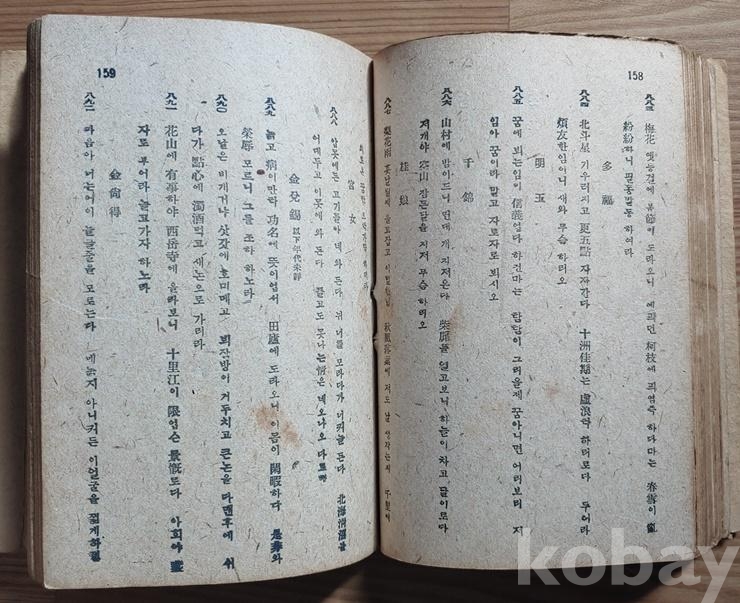 158
八八三 梅花 옛등걸에 봄節에 도라오니 예픠던 柯枝에 픠염즉 하다마는 春雪이 亂
紛紛하니 필동말동 하여라
多福
八八四 北斗星 기우러지고 更五點 자자간다 十洲佳期는 虛浪타 하리로다 두어라
煩友한임이니 새와 무슴 하리오
明玉
八八五 꿈에 뵈는임이 信義업다 하건마는 탐탐이 그리올제 꿈아니면 어이보리 저
임아 꿈이라 말고 자로자로 뵈시오
千錦
八八六 山村에 밤이드니 먼데 개 지저온다 柴扉를 열고보니 하늘이 차고 달이로다
저개야 空山 잠든달을 지저 무슴 하리오
桂娘
八八七 梨花雨 秋風落葉에 저도 날 생각는지 千里에
159
외로운 꿈만 오락가락
宮女
八八八 압못에든 고기들아 네와 든다 뉘 너를 모라다가 너커늘 든다 北海淸沼를
어데두고 이못에 와 든다 들고도 못나는 情은 네오나오 다르랴
金兌錫 以下年代未詳
八八九 늙고 病이만탁 功名에 뜻이업서 田廬에 도라오니 이몸이 閑暇하다 是非와
榮辱 모르니 그를 조하 하노라
八九〇 오날은 비개거냐 삿갓에 호미메고 뵈잠방이 거두치고 큰논을 다맨후에 쉬
다가 點心에 濁酒먹고 새논으로 가리라
八九一 花山에 有事하야 西岳寺에 올라보니 十里江이 限업슨 景槪로다 아희야 盞
자로 부어라 놀고가자 하노라
金尙得
八九二 마음아 너는어이 늘글줄을 모로는다 네늙지 아니커든 이얼굴을 젊게하렴
kobay